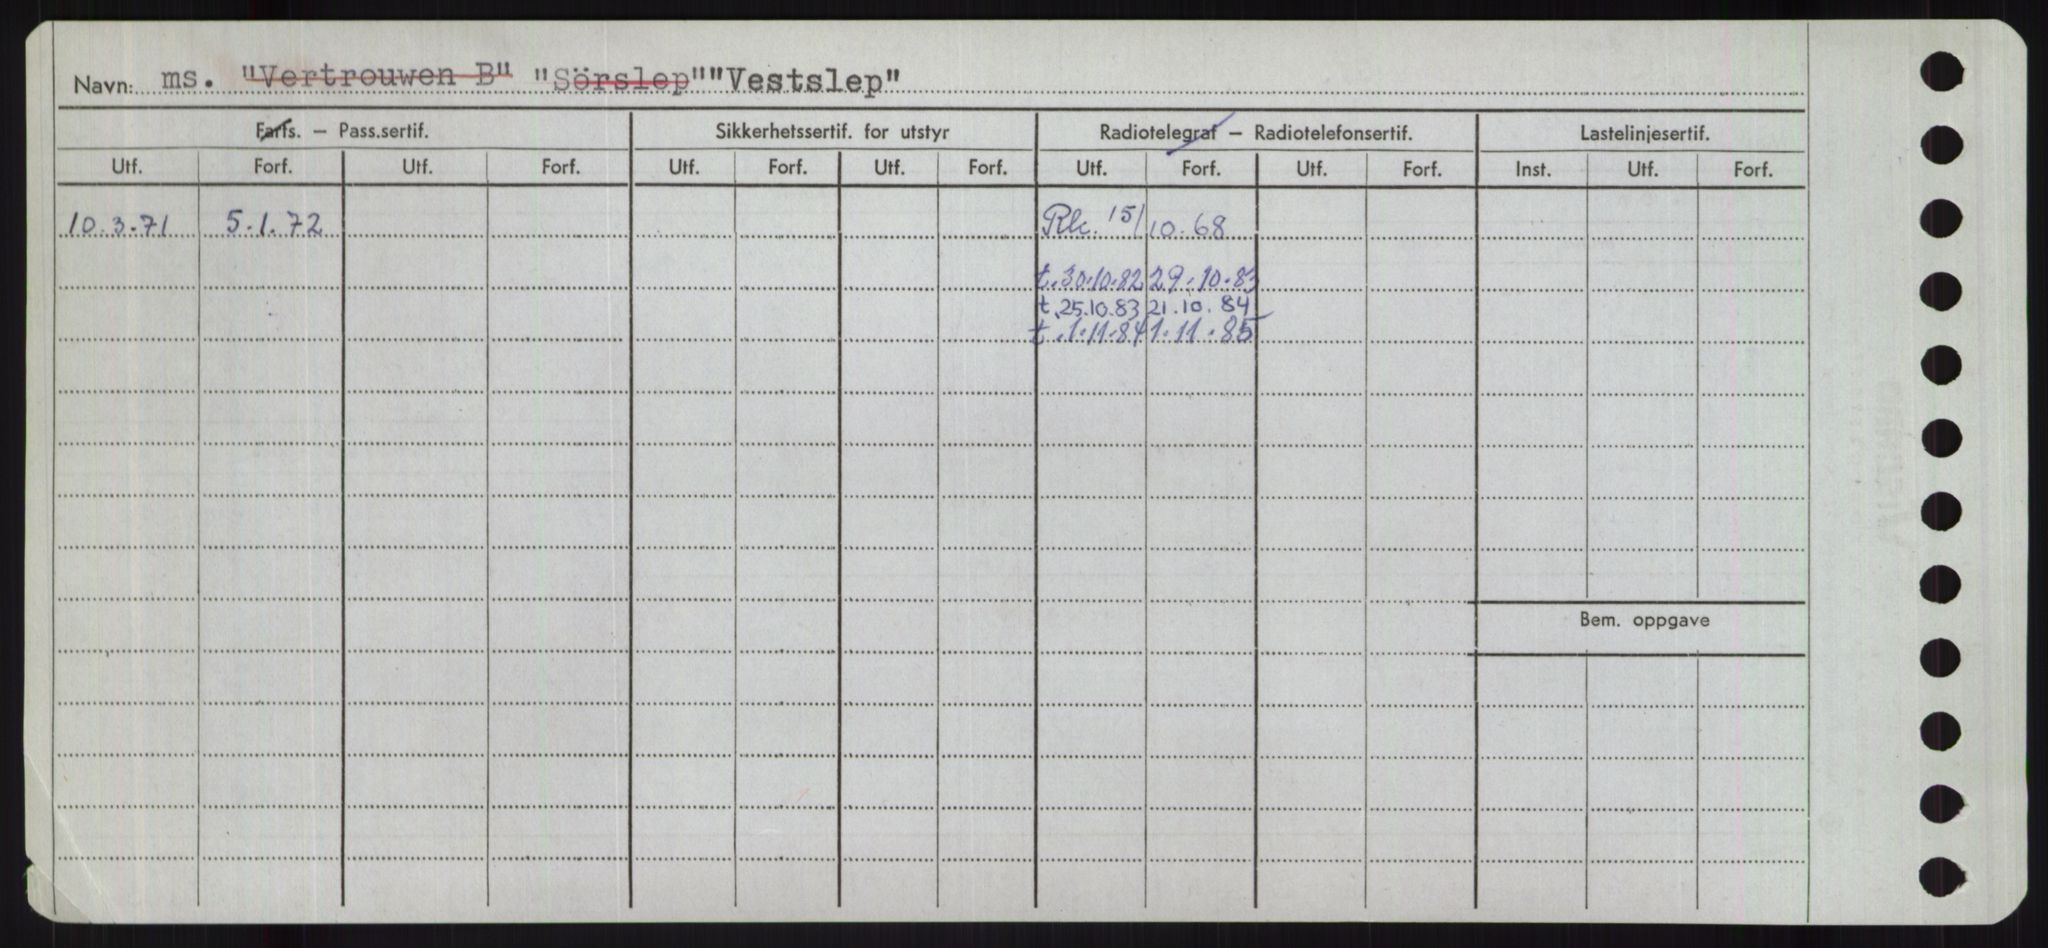 Navn: ms. "Vertrouwen B" "Sörslep" "Vestslep"
Farts. – Pass.sertif. Sikkerhetssertif. for utstyr Radiotelegraf – Radiotelefonsertif. Lastelinjesertif.
Utf. Forf. Utf. Forf. Utf. Forf. Utf. Forf. Utf. Forf. Utf. Forf. Inst. Utf. Forf.
10.3.71 5.1.72 Rk. 15/10.68
t.30.10.82 29.10.83
t.25.10.83 21.10.84
t.1.11.84 1.11.85
Bem. oppgave